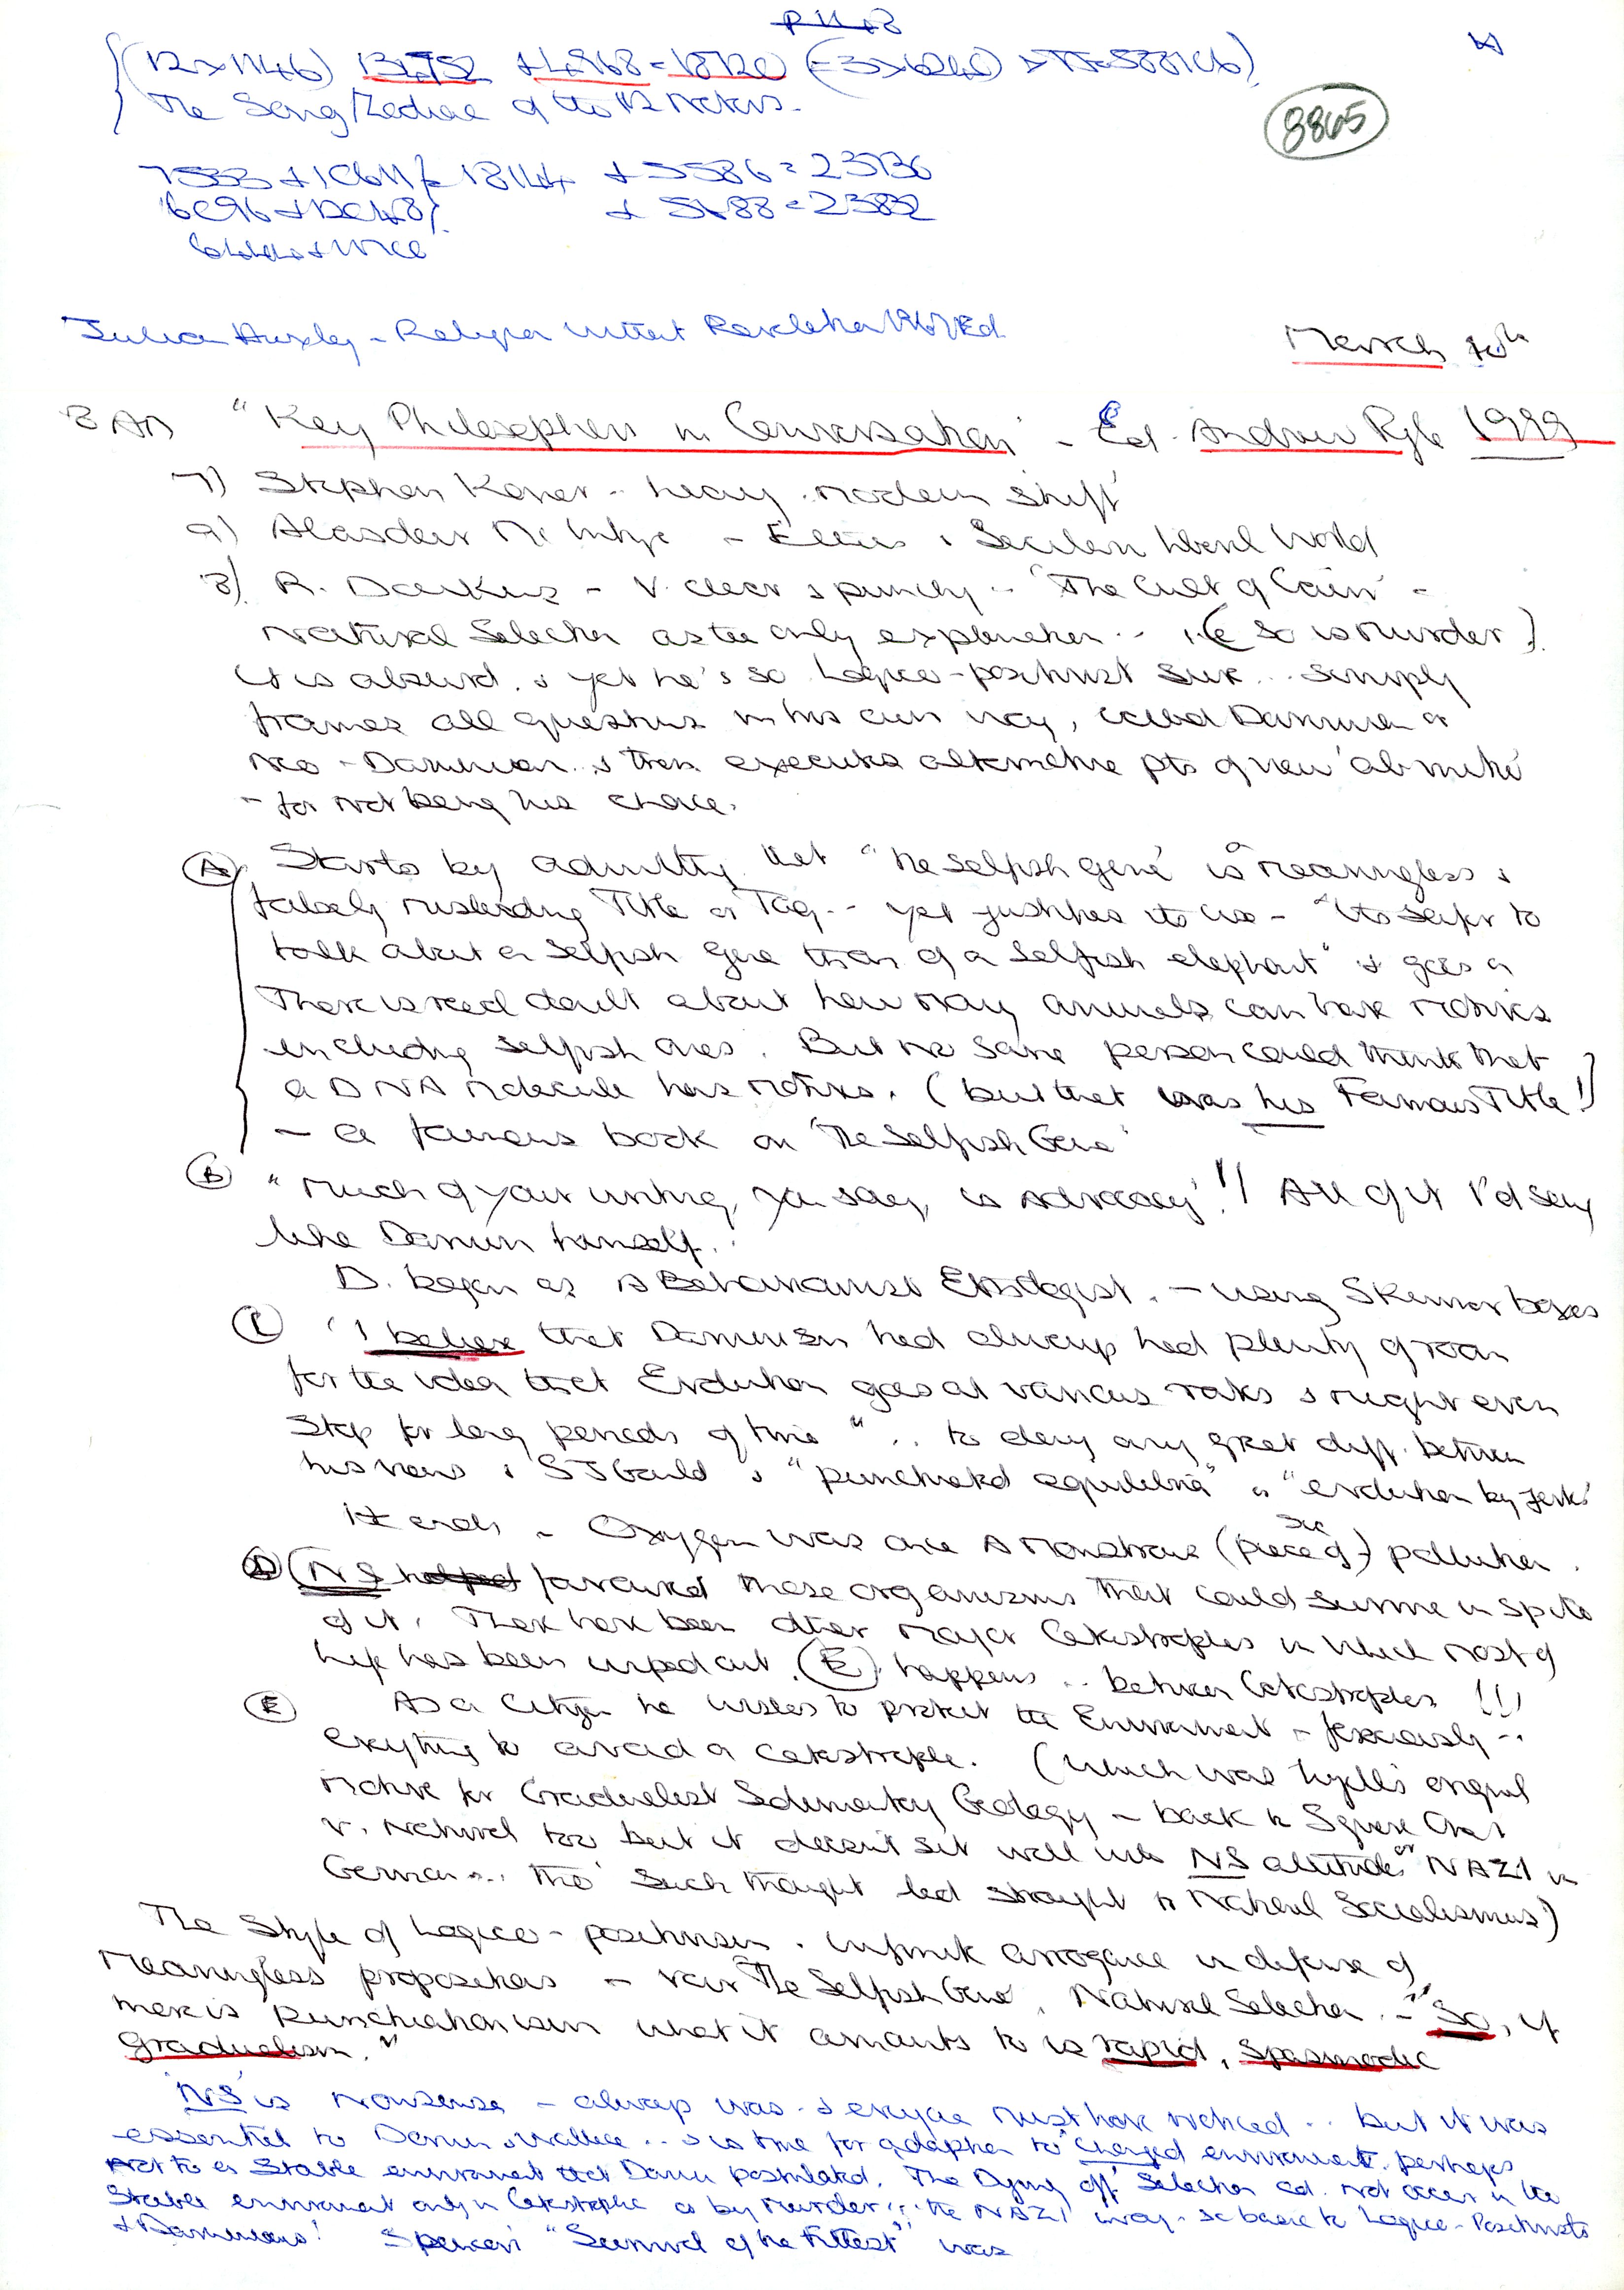 (12 x 1146) 13,752 + 4,968 = 18720 (= 3 x 6240)
The Song/Zodiac of the 12 Meters.
8865
7533 + 10611 = 18144 + 5586 = 23730
6096 + 12048 + 5688 = 23832
Julian Huxley - Religion without Revelation 1967 Ed
March 10th
3 AM "Key Philosophers in Conversation" - Ed. Andrew Pyle 1999
7) Stephan Korner - heavy modern stuff
9) Alasdair McIntyre - Ethics & Secular liberal World
3) R. Dawkins - V. clear & punchy .. 'The Cult of Cain' -
Natural Selection as the only explanation .. i.e. (so is Murder)
It is absurd, & yet he's so Logico-positivist sure .. simply
frames all questions in his own way, called Darwinian or
Neo-Darwinian & then executes alternative pts of view 'ab initio'
- for not being his choice.
A Starts by admitting that "The Selfish Gene" is meaningless &
falsely misleading Title or Tag .. yet justifies its use - "its safer to
talk about a selfish gene than of a selfish elephant" & goes on
There is real doubt about how many animals can have motives
including selfish ones. But no sane person could think that
a DNA molecule has motives. (but that was his Famous Title!)
- a famous book on 'The Selfish Gene'
B "Much of your writing, you say, is advocacy"!! All of it I'd say
like Darwin himself.
D. began as a Behaviourist Ethologist. - using Skinner boxes
C "I believe that Darwinism had always had plenty of room
for the idea that Evolution goes at various rates & might even
stop for long periods of time" .. to deny any great diff. between
his views & SJ Gould & "punctuated equilibria" or "evolution by jerks"
It ends - Oxygen was once a monstrous (piece of) sic pollution.
D (NS helped favoured those organisms that could survive in spite
of it. There have been other major Catastrophes in which most of
life has been wiped out. (E) happens .. between Catastrophes !!!
E As a Citizen he wishes to protect the Environment - ferociously -
everything to avoid a catastrophe. (which was Lyell's original
motive for Gradualist Sedimentary Geology - back to Square One &
v. Natural too but it doesn't sit well with NS attitudes or NAZI in
German .. tho' such thought led straight to National Socialismus)
The Style of Logico-positivism. infinite arrogance in defense of
meaningless propositions - "The Selfish Gene", Natural Selection. - "So, if
there is Punctuationism what it amounts to is rapid, spasmodic
gradualism."
NS is Nonsense - always was - & everyone must have noticed .. but it was
essential to Darwin & Wallace .. & is true for adaption to changed environment. perhaps
not to a stable environment that Darwin postulated. The Dying off Selection cd. not occur in the
stable environment only in Catastrophe or by murder .. the NAZI way - so back to Logico-Positivists
& Darwinians! Spencer's "Survival of the Fittest" was